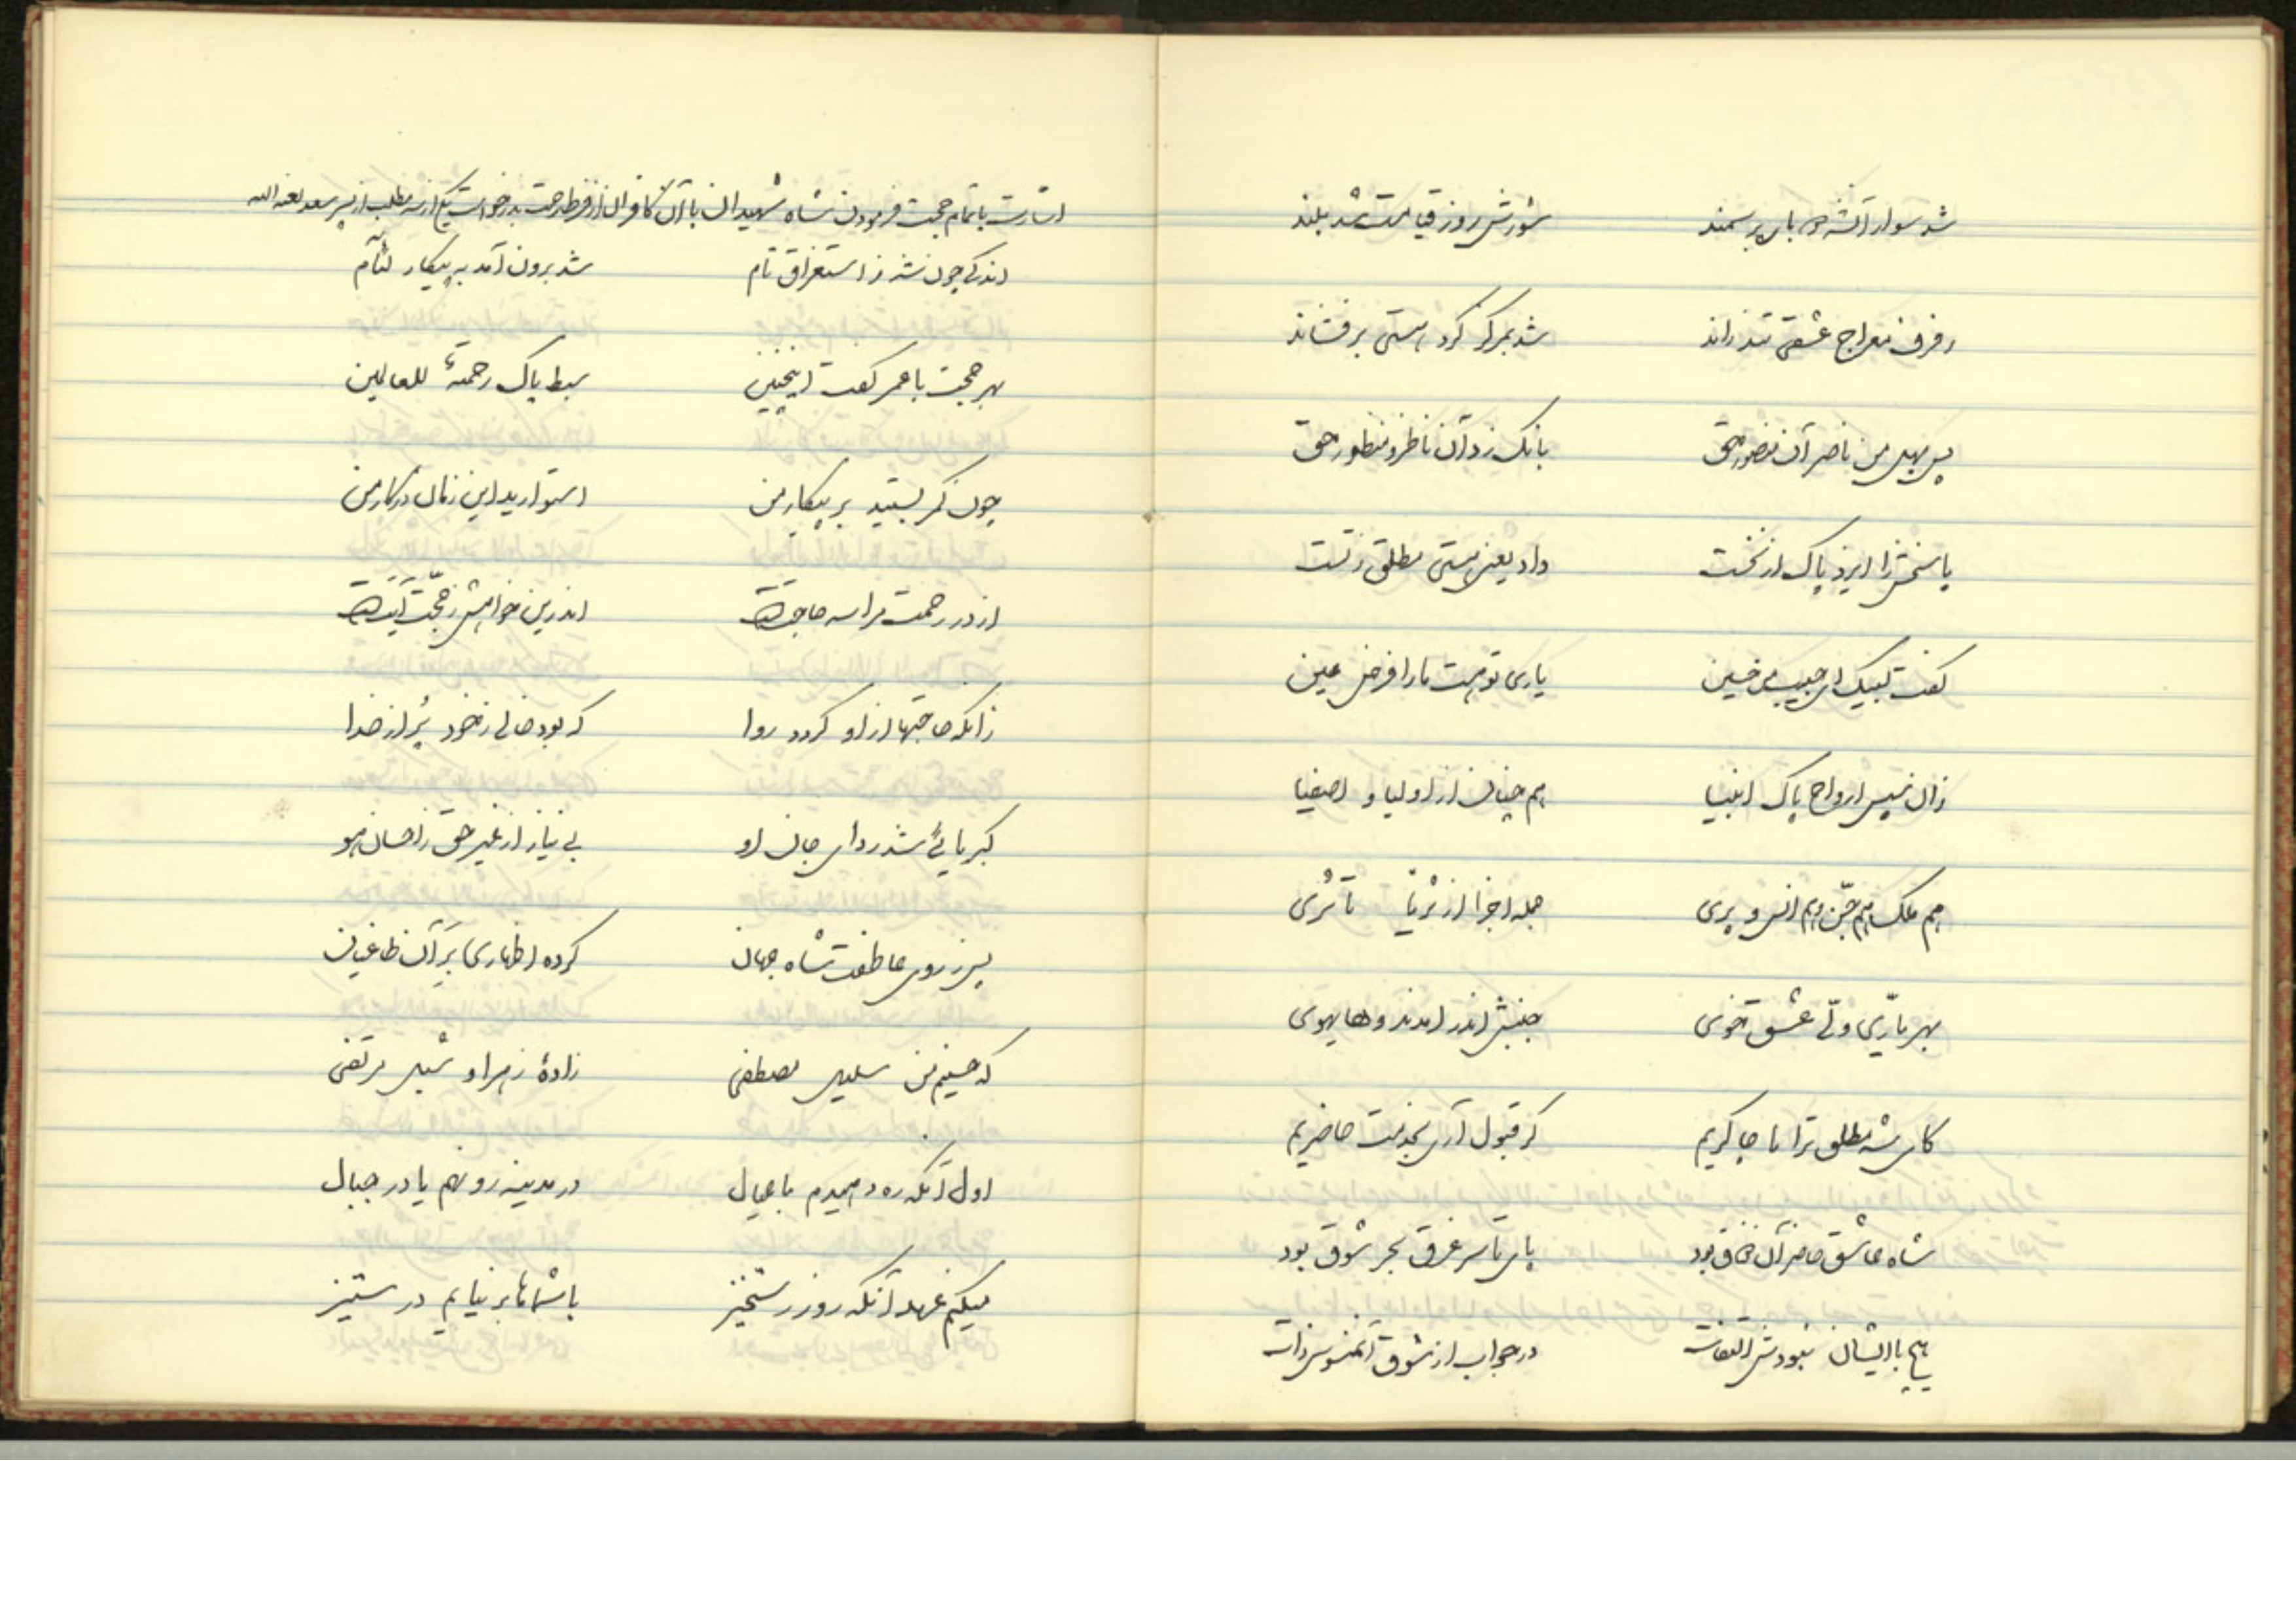 شد سوار آنشه بر سمند شورش روز قیامت شد بلند
رفرف معراج عشقی تند راند شد بمرکز گرد هستی برفشاند
پس بهل من ناصر آن منصور حق بانک زد آن ناظر و منظور حق
پاسخش را ایزد پاک از نخست داد یعنی هستی مطلق ز تست
گفت لبیک ای حبیب من حسین یاری تو هست ما را فرض عین
زان سپس ارواح پاک انبیا هم چنان از اولیا و اصفیا
هم ملک هم جن و هم انس و پری جمله اجزا از ثریا تا ثری
بهر یاری ولی عشق خوی جنبش اندر آمدند و های هوی
کای شه مطلق ترا ما چاکریم گر قبول آری بخدمت حاضریم
شاه عاشق خاصر آن بود پای تا سر غرق بحر شوق بود
هیچ با ایشان نبودش التفات در جواب از شوق ذات
اشارت باتمام حجت فرمودن شاه شهیدان با آن کافران از فرط رحمت بدرخواست یکی از سه مطلب از پسر سعد لعنه الله
اندکی چون شه ز استغراق تام شد برون آمد به پیکار لئام
بهر حجت با عمر گفت اینچنین سبط پاک رحمةً للعالمین
چون کمر بستید بر پیکار من استوارید این زمان در کار من
از در رحمت مرا سه حاجتست اندرین خواهش ز حجت آیتست
زانکه حاجتها از او گردد روا که بود خالی ز خود پر از خدا
کبریائی شد ردای جان او بی نیاز از غیر حق ز احسان هو
پس ز روی عاطفت شاه جهان کرده اظهاری بر آن طاغیان
که حسینم من سلیل مصطفی زادهٔ زهرا و شبل مرتضی
اول آنکه ره دهیدم با عیال در مدینه رو نهم یا در جبال
میکنم عهد آنکه روز رستخیز با شماها بر نیایم در ستیز